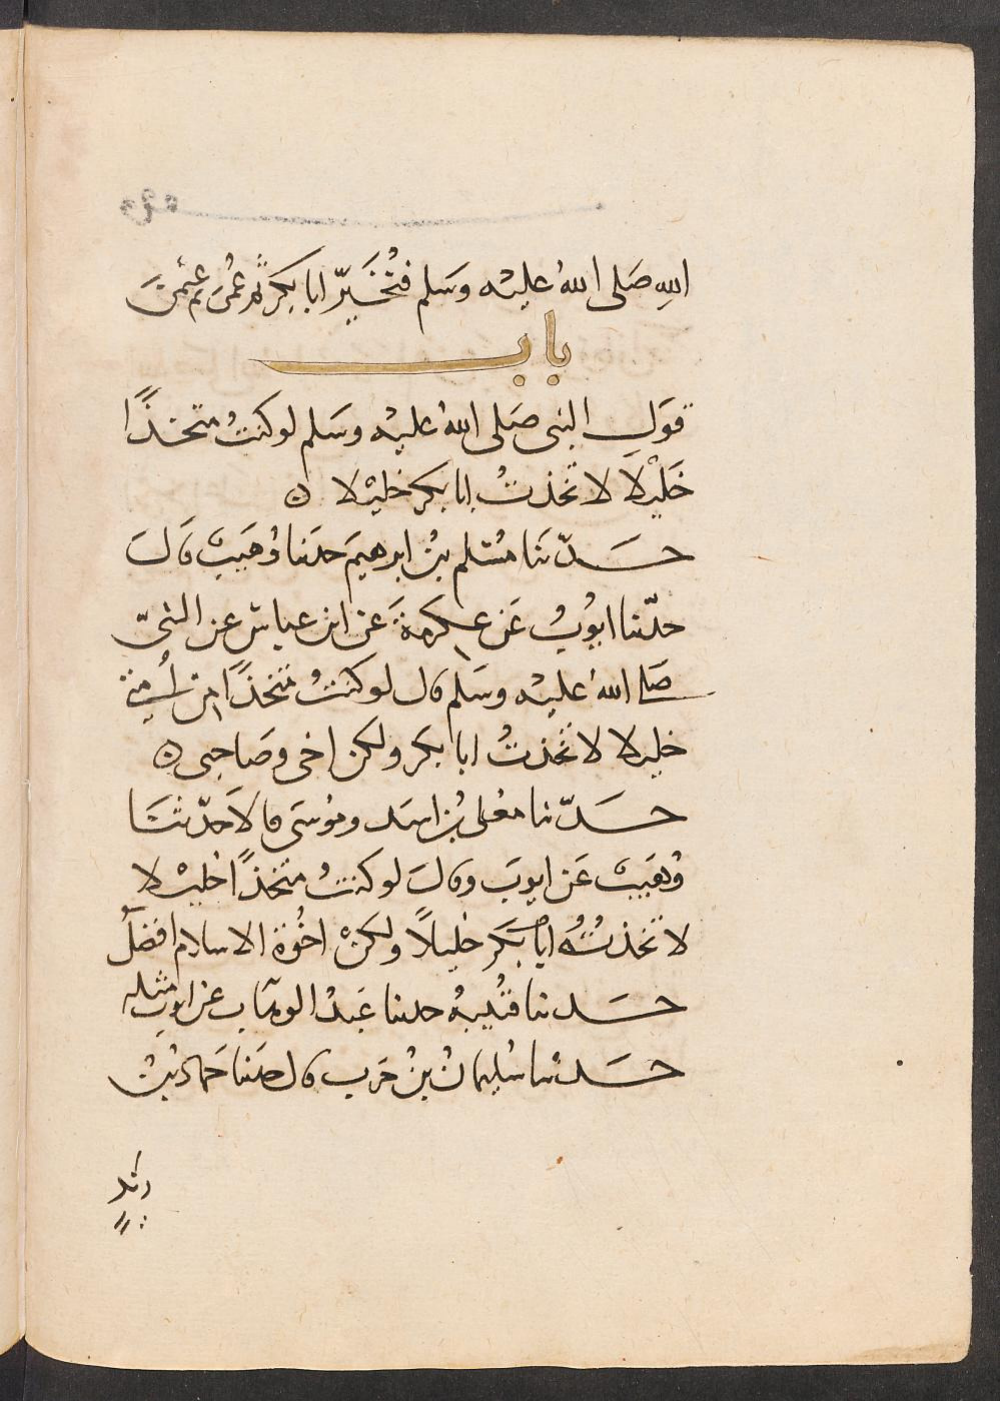 اللهِ صَلى اللهُ عليْه وسَلم فنُخَيِّر ابا بكرٍ ثم عُمَر ثم عثمٰنَ
باب
قول النبى صَلى اللهُ عليْه وسَلم لو كنتُ متخذًا
خَلِيْلًا لاتخذتُ ابا بكر خليْلا ٥
حَدّثنَا مُسْلم بنُ ابرهيمَ حدثنا وُهَيبٌ قَالَ
حدّثنا ايوُبُ عَن عِكرمةَ عن ابن عباسٍ عن النبيّ
صَلى اللهُ عليْه وسَلم قال لو كنتُ متخذًا من اُمتى
خليلا لاتخذتُ ابا بكر ولكن اخى وصَاحبى ٥
حَدّثنا معلى بنُ اسَد ومُوسَى قالَا حَدّثنَا
وُهَيبٌ عَن ايوبَ وقالَ لو كنتُ متخذًا خليْلا
لاتخذتُهُ ابا بَكر خليلاً ولكنْ اخُوة الاسلام افضلُ
حَدثنا قتُيبةُ حدثنا عَبدُ الوهّاب عن ايوبَ مثله
حَدثنا سُليمانُ بنُ حَرب قال حدثنا حَمادُ بنُ
زيد